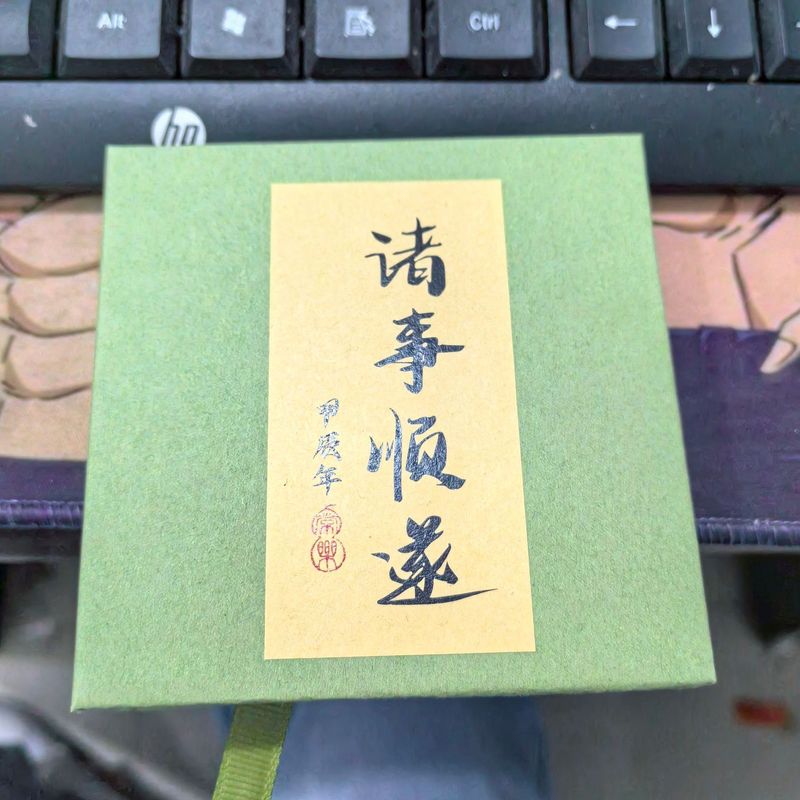 Alt
Ctrl
←
↓
hp
诸事顺遂
甲辰年
常樂